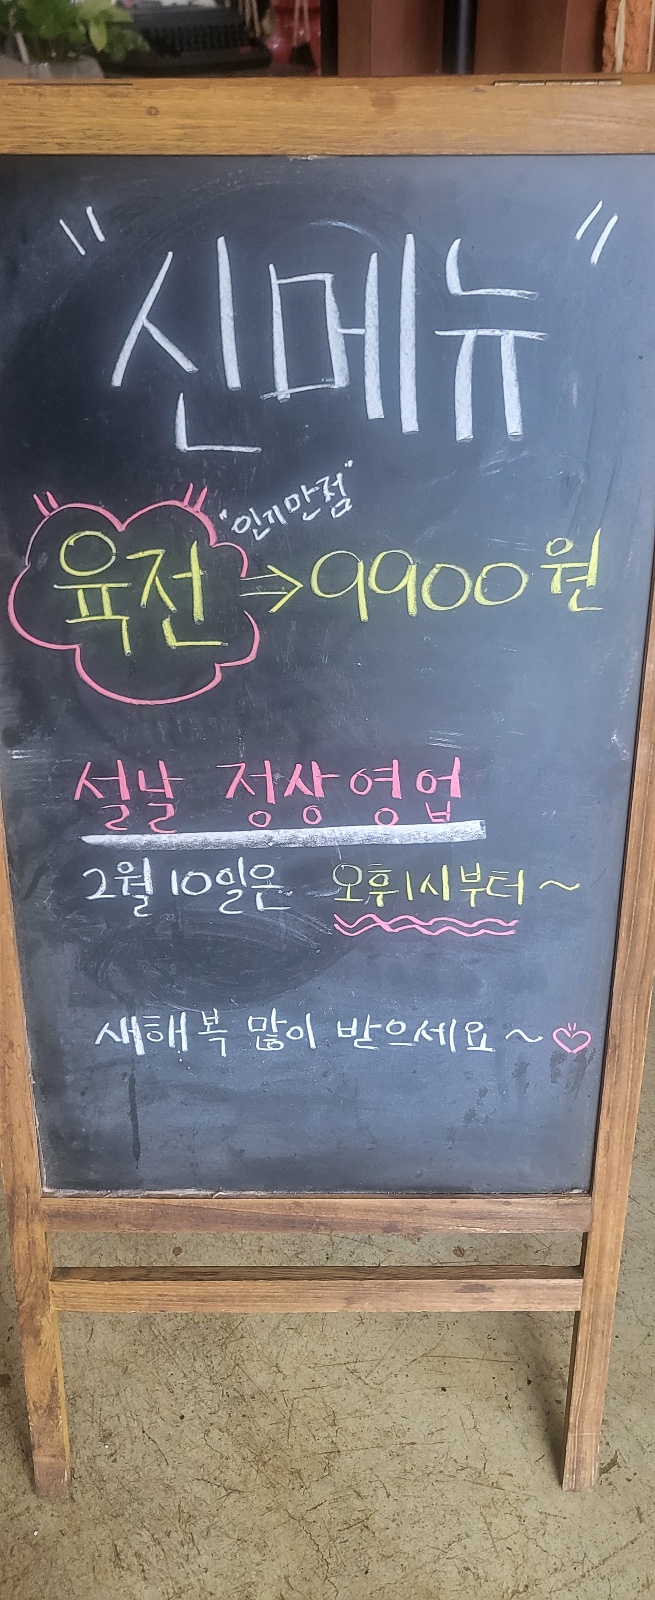 "신메뉴"
"인기만점"
육전 ⇒ 9900원
설날 정상영업
2월 10일은 오후1시부터~
새해복 많이 받으세요~♡